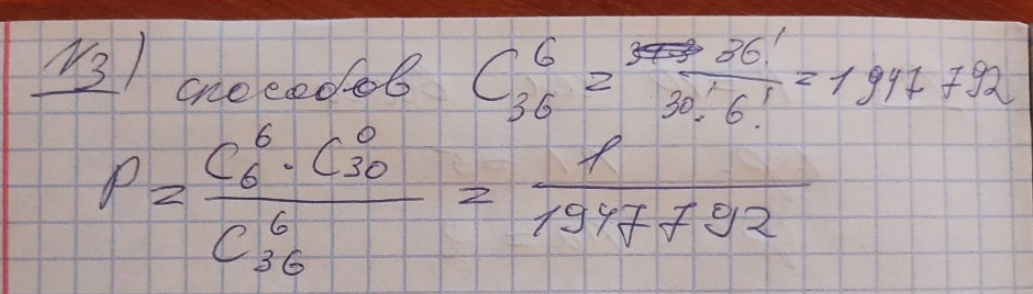 №3) способов C₃₆⁶ = 36! / 30! 6! = 1947792
P = C₆⁶ · C₃₀⁰ / C₃₆⁶ = 1 / 1947792